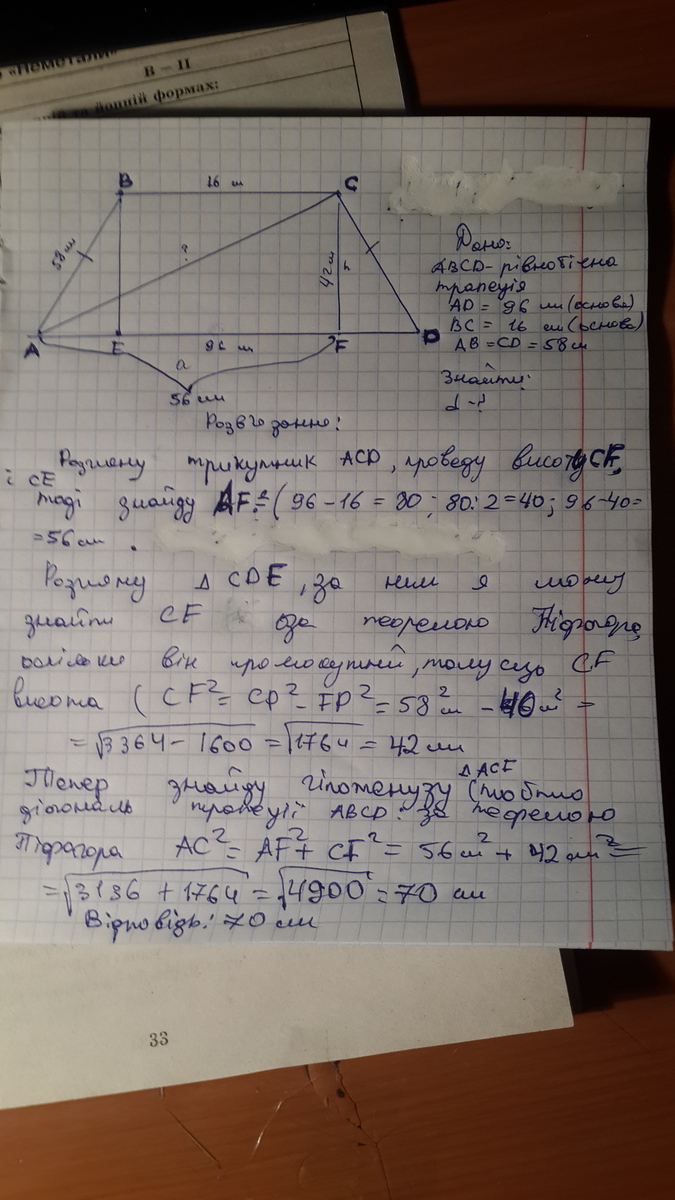 «Неметали»
В – II
та йонній формах:
B 16 см C
58 см
?
42 см h
A E 96 см F D
a
56 см
Дано:
ABCD - рівнобічна
трапеція
AD = 96 см (основа)
BC = 16 см (основа)
AB = CD = 58 см
Знайти:
d - ?
Розв'язання:
Розгляну трикутник ACD, проведу висоту CF,
і CE
тоді знайду AF = (96 - 16 = 80; 80:2=40; 96-40=
=56 см.
Розгляну △ CDE, за ним я можу
знайти CF за теоремою Піфагора,
оскільки він прямокутний, тому що CF
висота (CF² = CD² - FD² = 58²см - 40см² =
= √3364 - 1600 = √1764 = 42 см
Тепер знайду гіпотенузу △ ACF (тобто
діагональ трапеції ABCD: за теоремою
Піфагора AC² = AF² + CF² = 56см² + 42 см² =
= √3136 + 1764 = √4900 = 70 см
Відповідь: 70 см
33